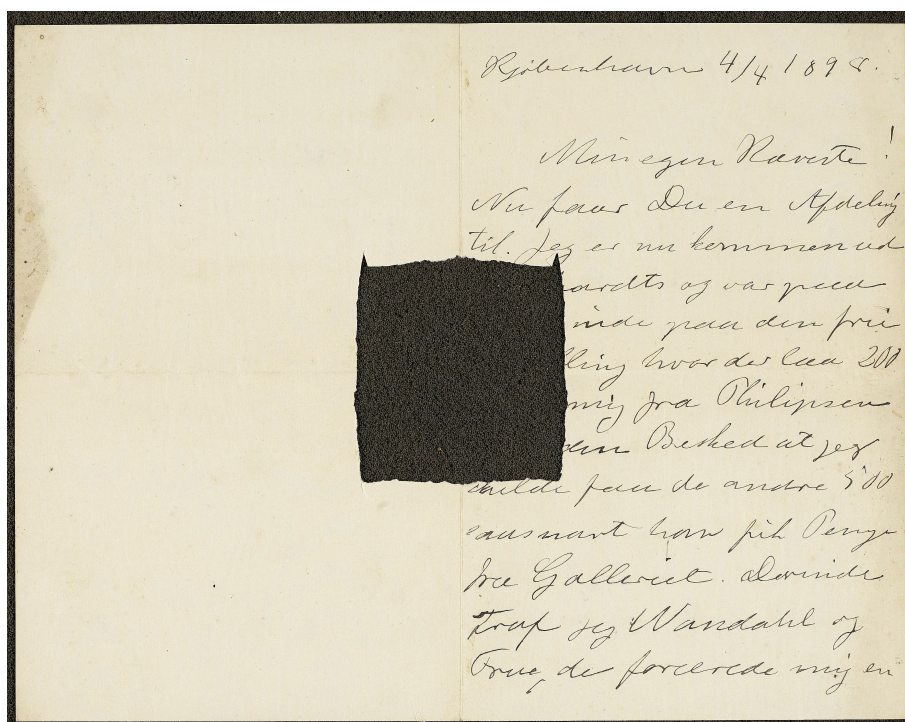 Kjøbenhavn 4/4 1898.
Min egen Kæreste!
Nu faar Du en Afdeling
til. Jeg er nu kommen ud
ardts og var paa
inde paa den frie
lling hvor der laa 200
mig fra Philipsen
den Besked at jeg
skulde faa de andre 500
saasnart han fik Penge
fra Galleriet. Derinde
traf jeg Wandahl og
Frue, de forærede mig en